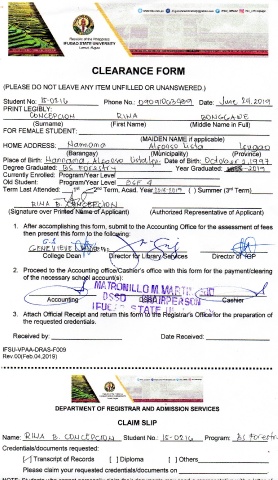 Republic of the Philippines
IFUGAO STATE UNIVERSITY
Lamut, Ifugao
CLEARANCE FORM
(PLEASE DO NOT LEAVE ANY ITEM UNFILLED OR UNANSWERED.)
Student No.: 15-0216 Phone No.: Date: June 24, 2019
PRINT LEGIBLY: CONCEPCION RINA BONGGANE
(Surname) (First Name) (Middle Name in Full)
FOR FEMALE STUDENT:
(MAIDEN NAME if applicable)
HOME ADDRESS: Namnama Alfonso Lista Ifugao
(Barangay) (Municipality) (Province)
Place of Birth: Namnama Alfonso Lista Date of Birth: October 2, 1997
Degree Graduated: BS Forestry Year Graduated:
Currently Enrolled: Program/Year Level
Old Student: Program/Year Level BSF 4
Term Last Attended: 1st 2nd Term, Acad. Year 2018-2019 ( ) Summer (3rd Term)
RINA B. CONCEPCION
(Signature over Printed Name of Applicant) (Authorized Representative of Applicant)
1. After accomplishing this form, submit to the Accounting Office for the assessment of
fees then present this form to the following:
GENEVIEVE
College Dean Director for Library Services Director of
2. Proceed to the accounting office/Cashier's office with this form for the payment/clearing
of the necessary school account(s):
MATRONILLO M. MARTIN
DSSD CHAIRPERSON
Accounting Cashier
3. Attach Official Receipt and return this form to the Registrar's Office for the preparation of
the requested credentials.
Received by: Date Received:
IFSU-VPAA-DRAS-F009
Rev.00(Feb.04,2019)
DEPARTMENT OF REGISTRAR AND ADMISSION SERVICES
CLAIM SLIP
Name: RINA B. CONCEPCION Student No.: 15-0216 Program: BS Forestry
Credentials/documents requested:
[ ] Transcript of Records [ ] Diploma [ ] Others
Please claim your requested credentials/documents on